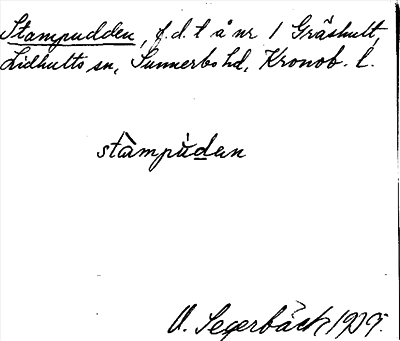 Stampudden, f.d.t å nr 1 Gräshult,
Lidhults sn, Sunnerbo hd, Kronob. l.
stàmpùden
V. Segerbäck 1929.